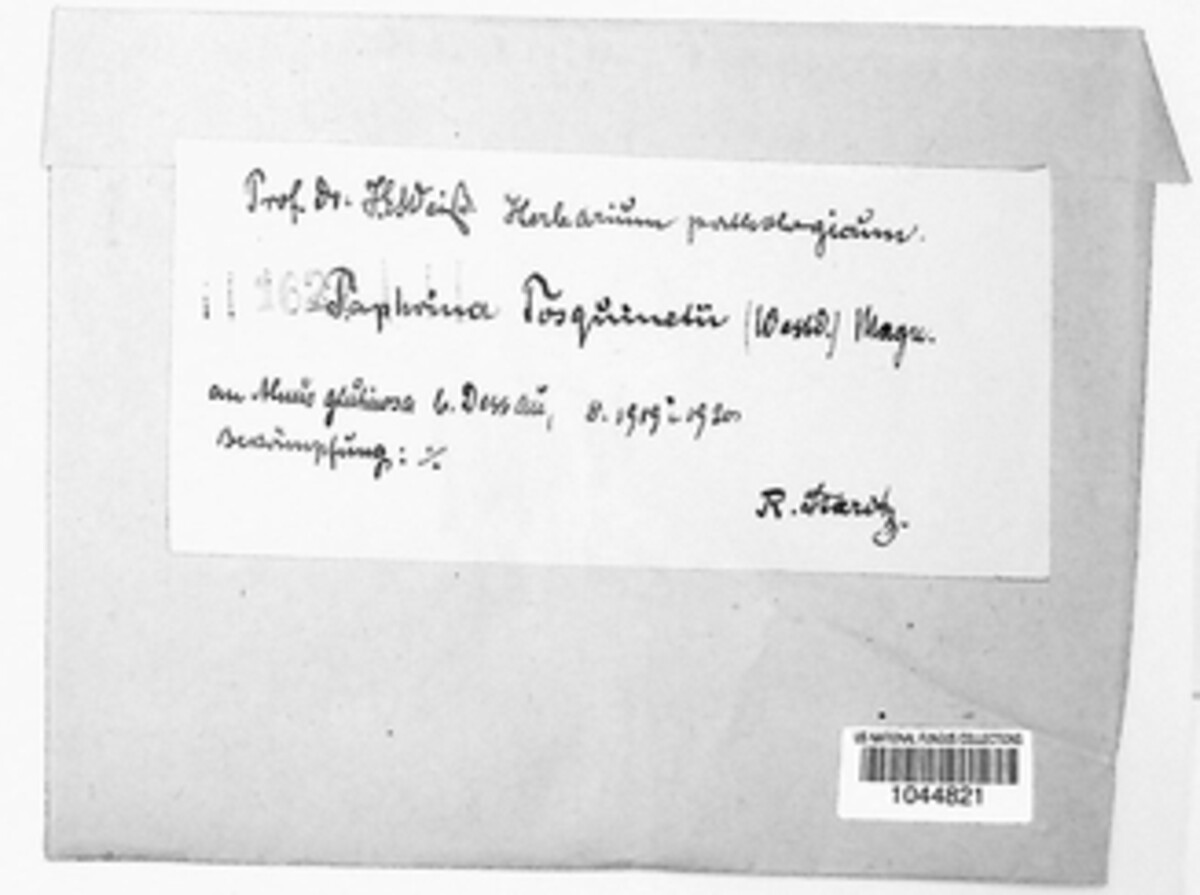 Prof. Dr. Weiß Herbarium pathologicum.
162 Taphrina Tosquinetii (Westd.) Magn.
an Alnus glutinosa b. Dessau, 8. 1919 u. 1920
Bekämpfung: ∕.
R. Staritz.
US NATIONAL FUNGUS COLLECTIONS
1044821